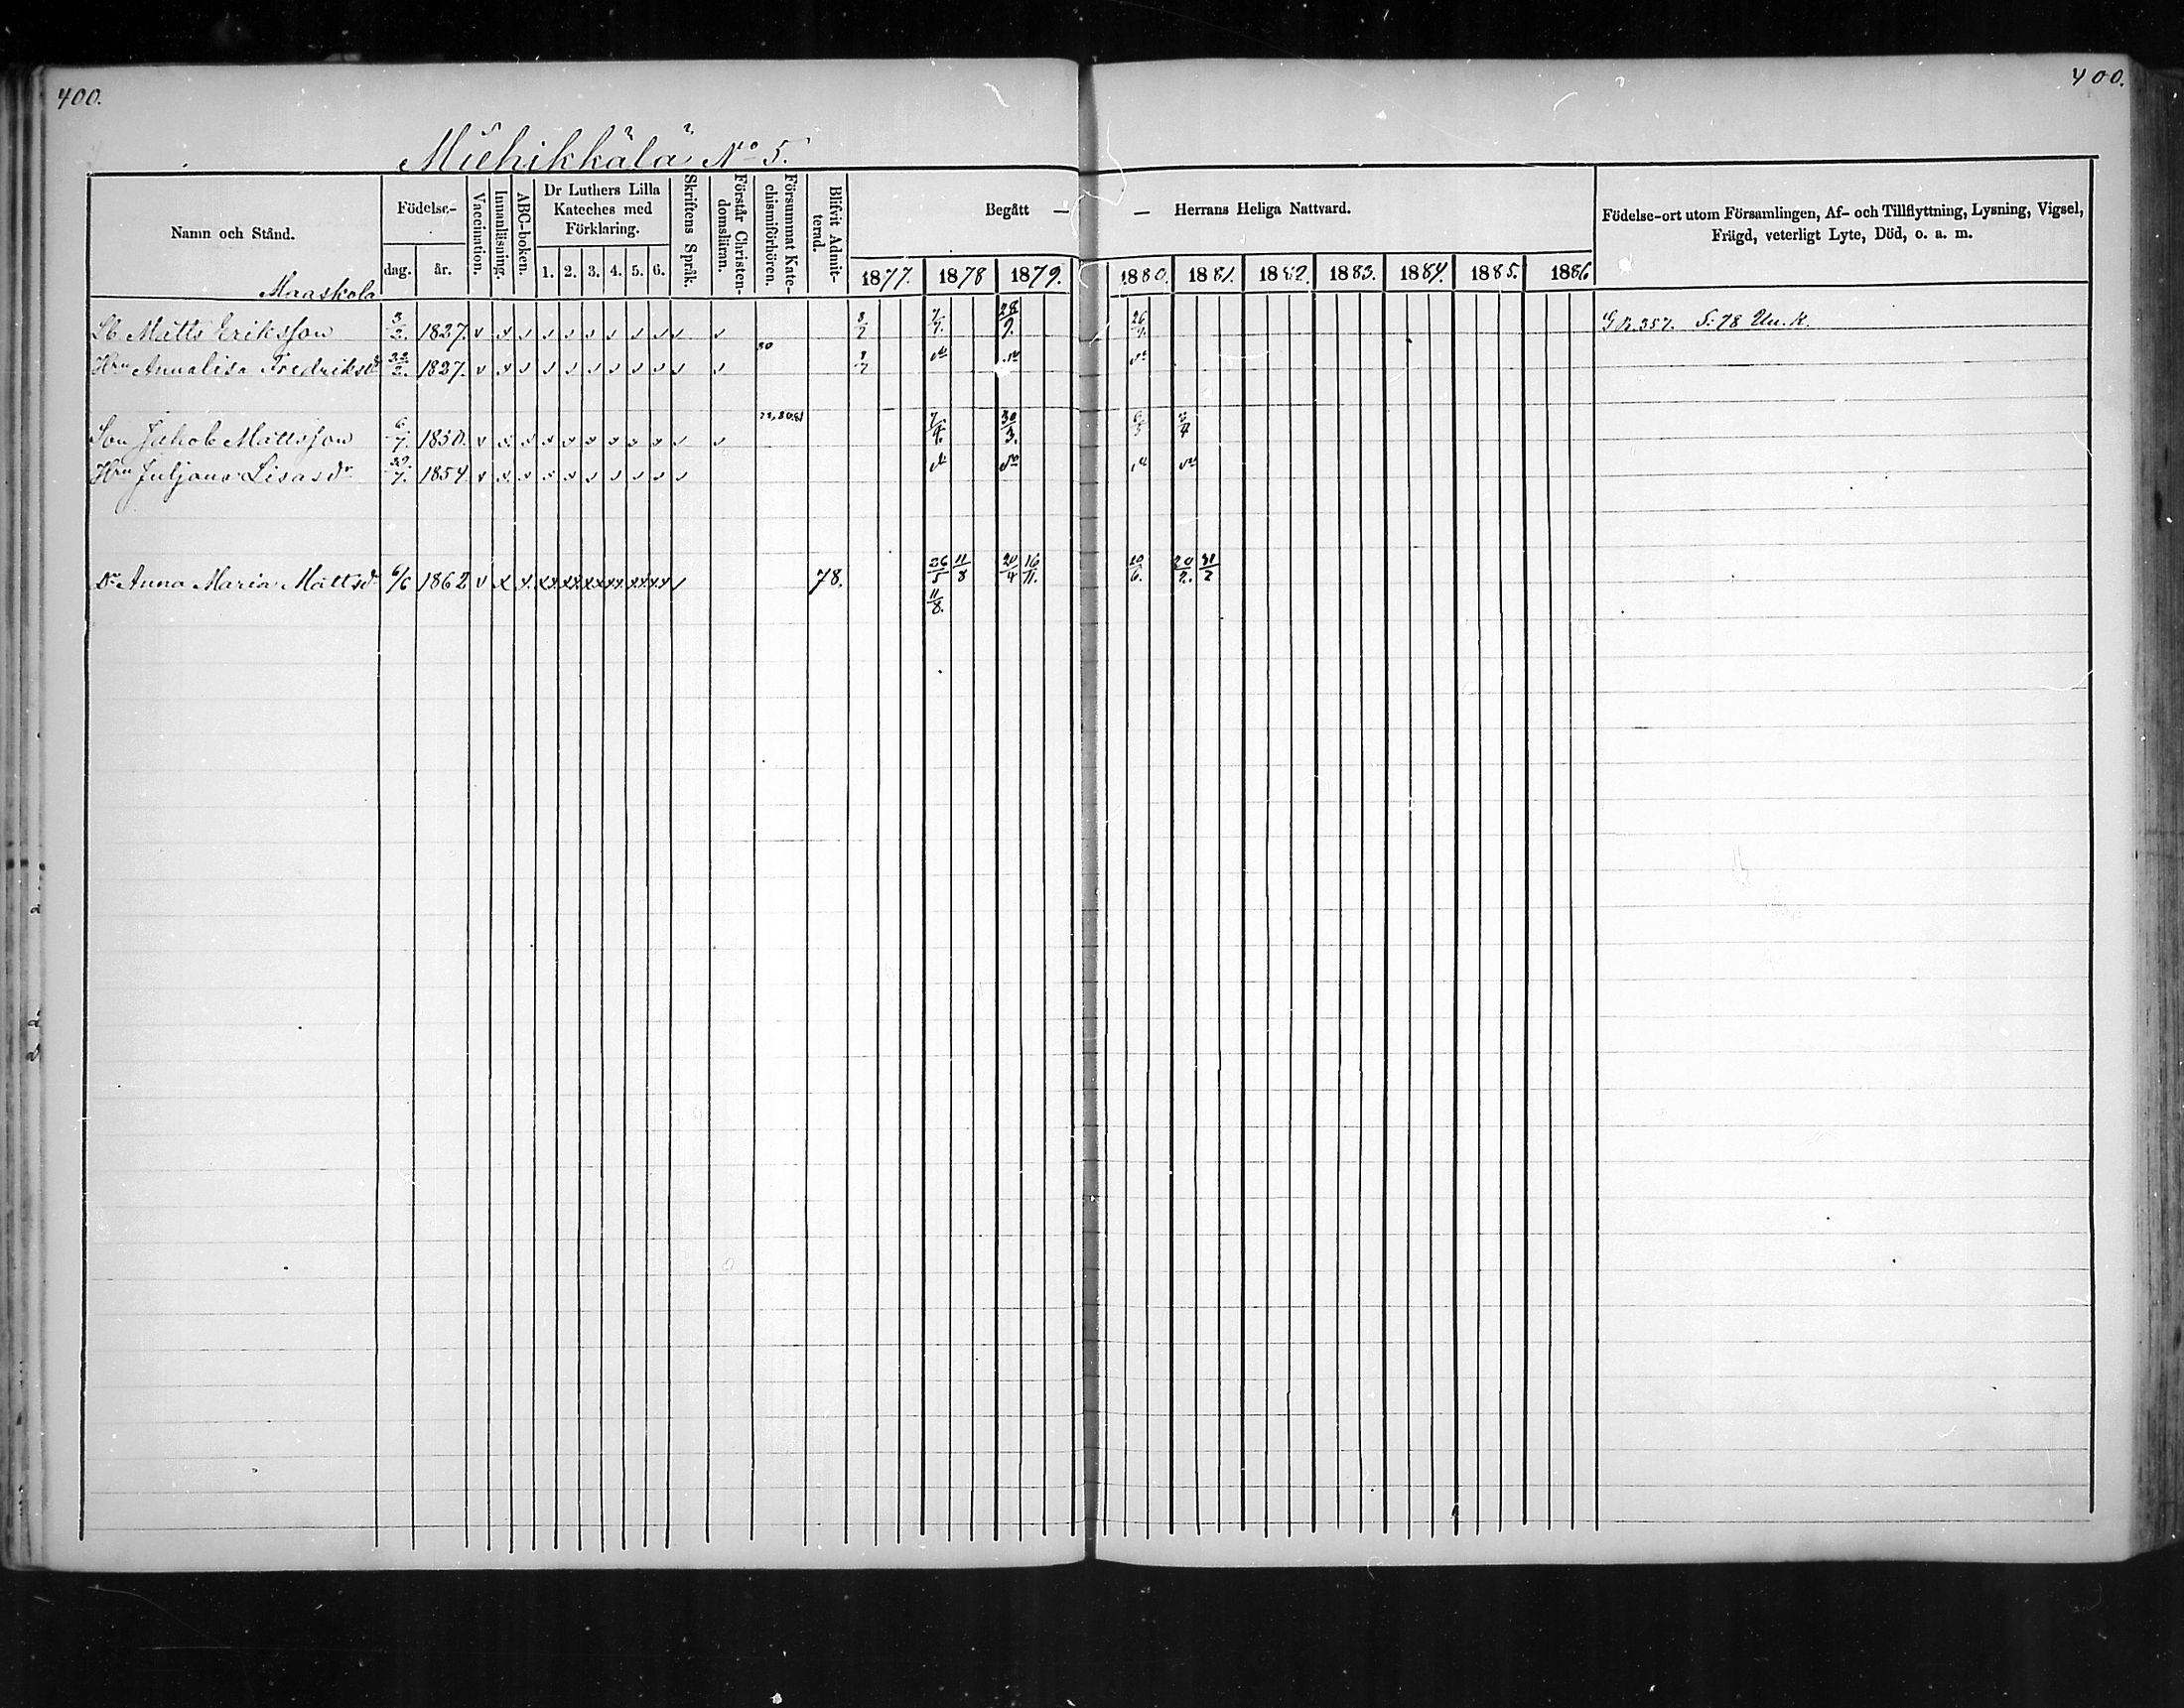 400.
400.
Miehikkälä No 5.
Namn och Stånd.
Födelse-
dag.
år.
Vaccination.
Innanläsning.
ABC-boken.
Dr Luthers Lilla
Kateches med
Förklaring.
1. 2. 3. 4. 5. 6.
Skriftens Språk.
Förstår Christen-
domsläran.
Försummat Kate-
chismiförhören.
Blifvit Admit-
terad.
Begått —
— Herrans Heliga Nattvard.
1877. 1878 1879. 1880. 1881. 1882. 1883. 1884. 1885. 1886
Födelse-ort utom Församlingen, Af- och Tillflyttning, Lysning, Vigsel,
Frägd, veterligt Lyte, Död, o. a. m.
Maaskola
Matts Eriksson 3/2. 1827. v x 26/9. 357. S. 78
Hru Annalisa Fredriksdr 22/2. 1827. v x 80
Son Jakob Mattsson 6/7. 1850. v x 7/4. 30/3. 2/4
Hru Juljana Lisasdr 1854 v x
Dr Anna Maria Mattsdr 6/6 1862 v x x 78. 26/5 11/8 20/4 16/11. 20/6. 20/2. 31/2
11/8.